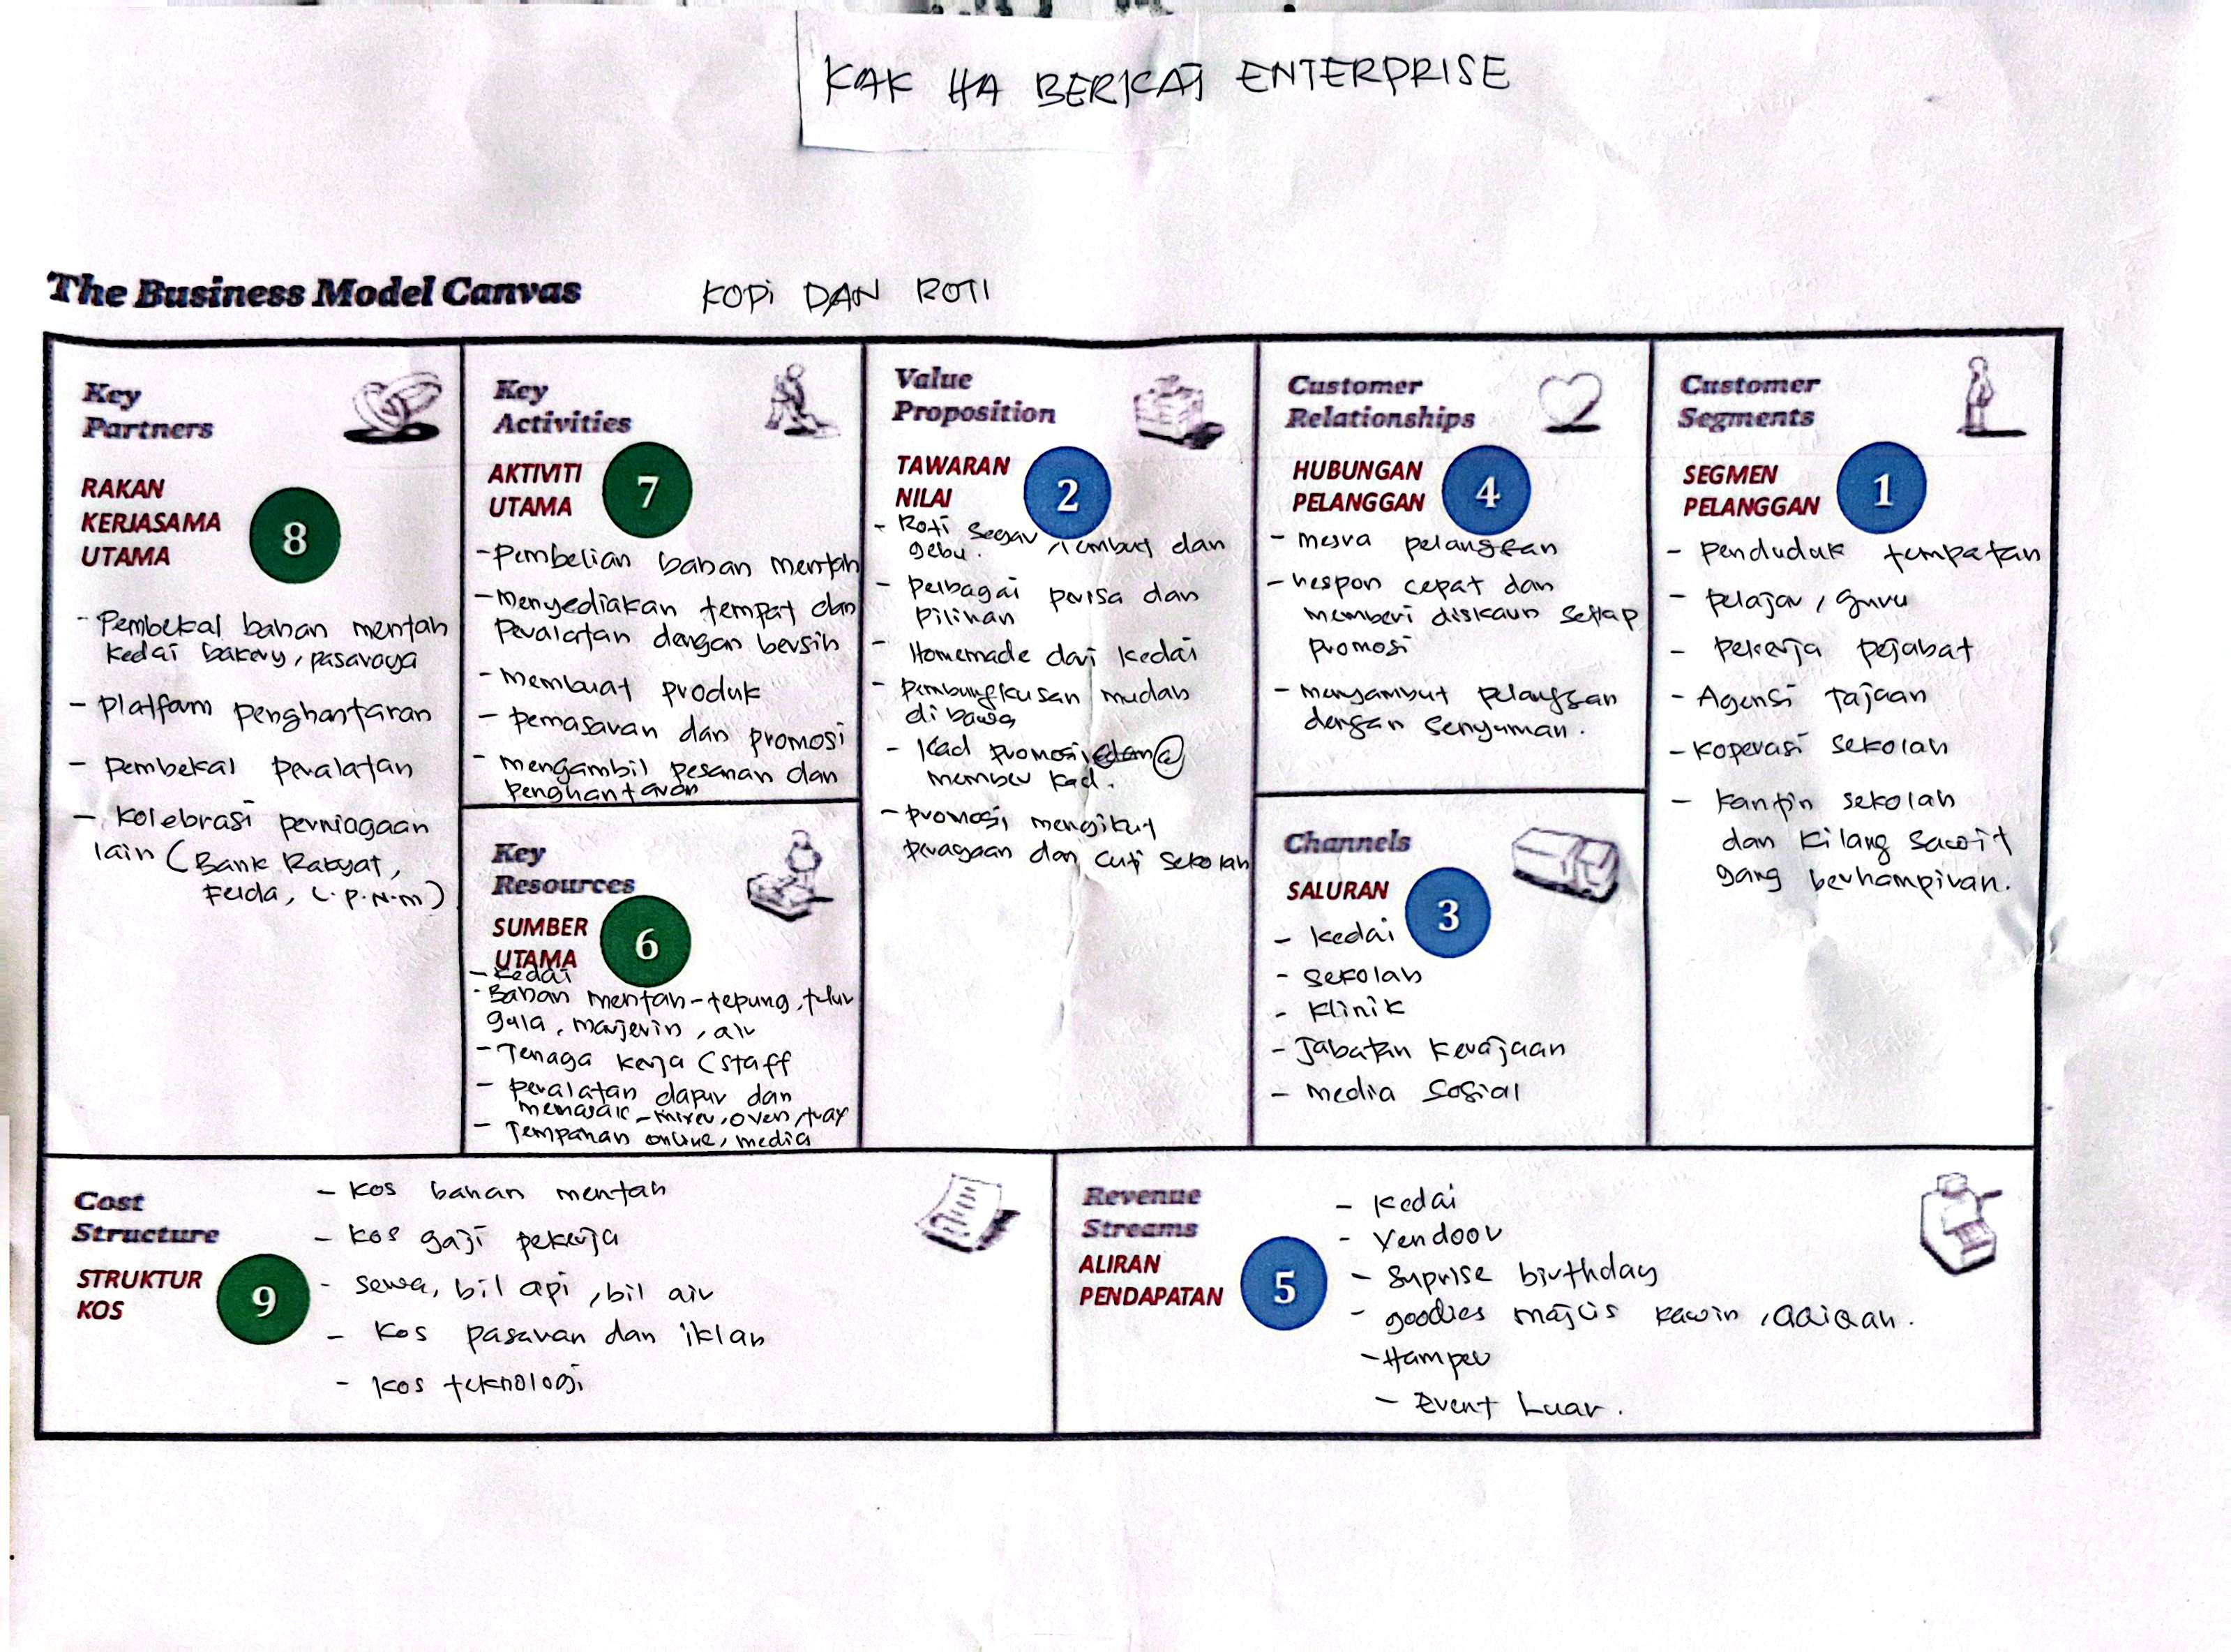 KAK HA BERKAT ENTERPRISE
The Business Model Canvas
KOPI DAN ROTI
Key
Partners
RAKAN
KERJASAMA
UTAMA
8
- Pembekal bahan mentah
kedai bakery, pasaraya
- Platfom penghantaran
- Pembekal peralatan
- Kolebrasi perniagaan
lain (Bank Rakyat,
Felda, L.P.N.M)
Key
Activities
AKTIVITI
UTAMA
7
- Pembelian bahan mentah
- Menyediakan tempat dan
Peralatan dengan bersih
- membuat produk
- Pemasaran dan promosi
- mengambil pesanan dan
Penghantaran
Key
Resources
SUMBER
UTAMA
6
- Kedai
- Bahan mentah - tepung, telur
gula, marjerin, air
- Tenaga kerja (staff
- Peralatan dapur dan
memasak - mixer, oven, tray
- Tempahan online, media
Value
Proposition
TAWARAN
NILAI
2
- Roti segar, lembut dan
gebu.
- Pelbagai perisa dan
pilihan
- Homemade dari kedai
- Pembungkusan mudah
dibawa
- Kad promosi dan @
member kad.
- Promosi mengikut
perayaan dan cuti sekolah
Customer
Relationships
HUBUNGAN
PELANGGAN
4
- mesra pelanggan
- respon cepat dan
memberi diskaun setiap
promosi
- menyambut pelanggan
dengan senyuman.
Channels
SALURAN
3
- Kedai
- Sekolah
- Klinik
- Jabatan Kerajaan
- media sosial
Customer
Segments
SEGMEN
PELANGGAN
1
- Penduduk tempatan
- Pelajar, guru
- Pekerja pejabat
- Agensi Tajaan
- Koperasi sekolah
- Kantin sekolah
dan kilang sawit
yang berhampiran.
Cost
Structure
STRUKTUR
KOS
9
- Kos bahan mentah
- Kos gaji pekerja
- sewa, bil api, bil air
- Kos pasaran dan iklan
- Kos teknologi
Revenue
Streams
ALIRAN
PENDAPATAN
5
- Kedai
- Vendoor
- Suprise birthday
- goodies majlis kawin, aqiqah.
- Hamper
- Event Luar.